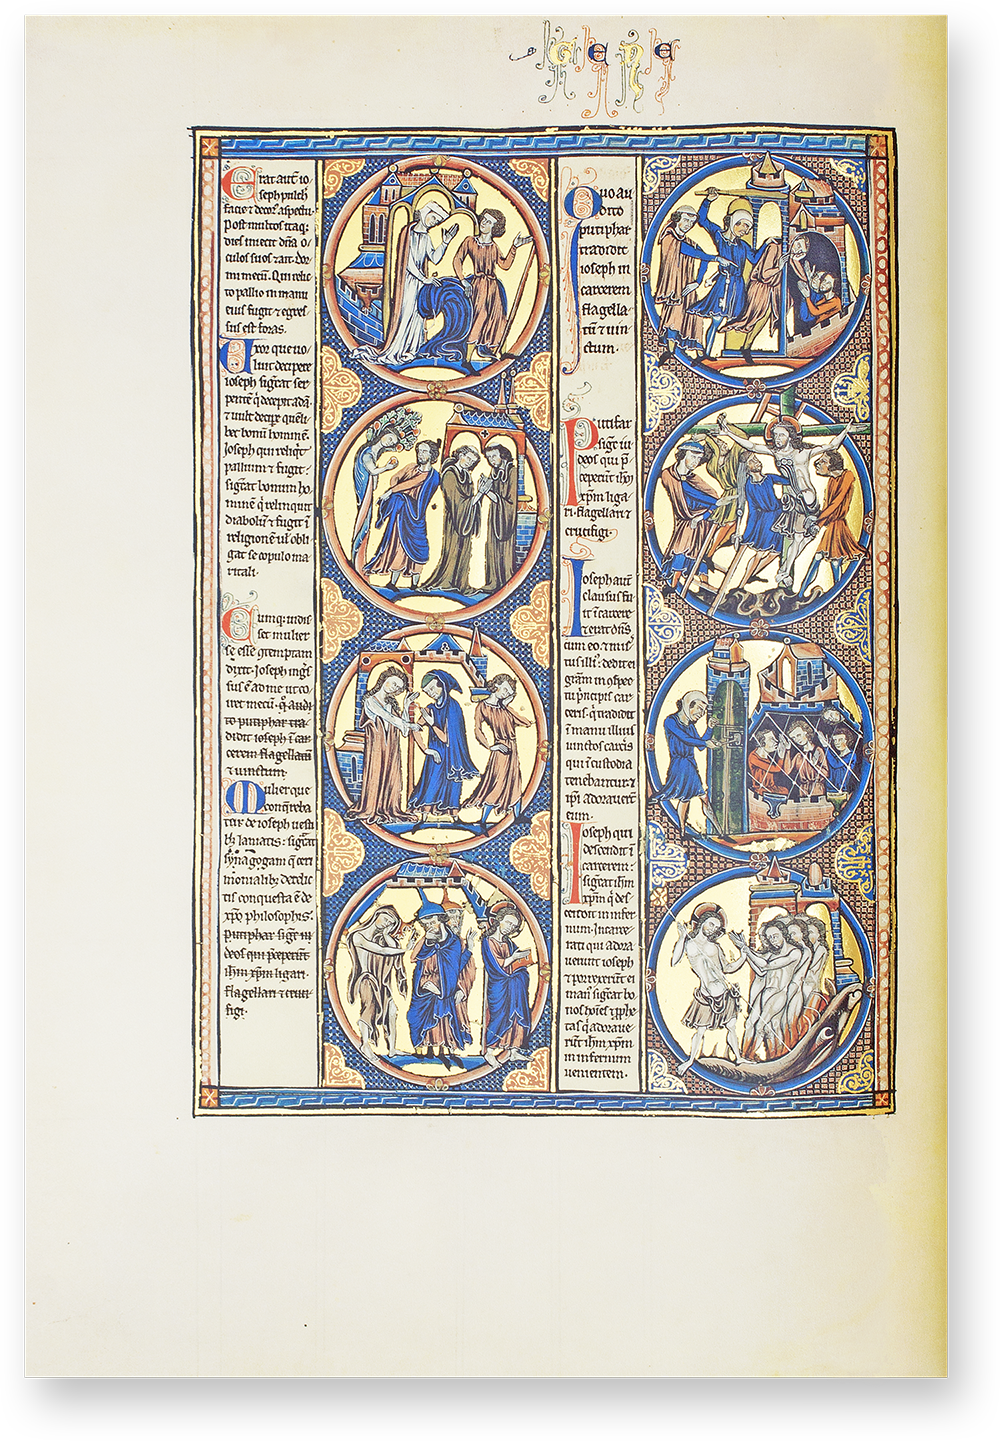 GENE
Erat aut̃ io
seph pulch̃
facie ⁊ decor᷒ aspectu.
Post multos itaq;
dies iniecit dñã o/
culos suos ⁊ ait. dor
mi mecũ. Qui relic
to pallio in manu
eius fugit ⁊ egres
sus est foras.
Uxor que uo/
luit decipere
ioseph sigñat ser
pentẽ q̇ decepit adã.
⁊ uult decipe quẽli
bet bonũ hominẽ.
Joseph qui reliq̇t
pallium ⁊ fugit:
sigñat bonum ho
minẽ q̇ relinquit
diabolũ ⁊ fugit ĩ
religionẽ ut̃ obli
gat se copulo ma
ritali.
Cumq; uidis
set mulier
se esse gtemptam
dixit. Joseph ing̃s
sus ẽ ad me ut co
iret mecũ. q̊ audi
to putiphar tra
didit ioseph ĩ car
cerem flagellatũ
⁊ uinctum.
Mulier que
conq̃reba
tur de ioseph uesti
bȝ laniatis: sigñat
synagogam q̃ ceri
monialibȝ derelic
tis conquesta ẽ de
xp̃o philosophis.
Putiphar sigñt iu
deos qui p̃ceperũt
ihm̃ xp̃m ligari.
flagellari ⁊ cruci
figi.
Quo au
dito
putiphar
tradidit
ioseph in
carcerem
flagella
tũ ⁊ uin
ctum.
Putifar
sigñt iu
deos qui p̃
ceperũt ihm̃
xp̃m liga
ri. flagellari ⁊
crucifigi.
Joseph aut̃
clausus fu
it ĩ carcere
⁊ erat dñs
cum eo. ⁊ mis̃
tus illi᷒. dedit ei
gr̃am in ospec
tu p̃ncipis car
ceris. q̇ tradidit
ĩ manu illius
uinctos carcis
qui ĩ custodia
tenebantur ⁊
ip̃i adorauert̃
eum.
Joseph qui
descendit ĩ
carcerem:
sigñat ihm̃
xp̃m q̇ des
cendit in infer
num. Incarce
rati qui adora
uerunt ioseph
⁊ porrexerũt ei
man᷒ sigñat bo
nos hoĩes ⁊ p̃phe
tas q̇ adoraue
rũt ihm̃ xp̃m
in infernum
uenientem.